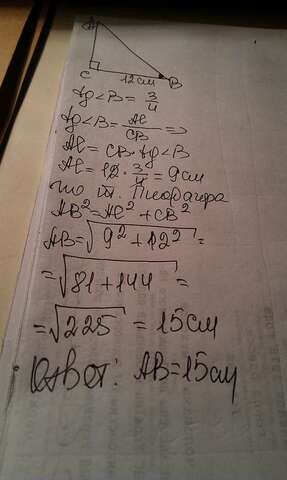 A
C 12 см B
tg<B = 3/4
tg<B = AC/CB =>
AC = CB · tg<B
AC = 12 · 3/4 = 9 см
по т. Пифагора
AB² = AC² + CB²
AB = √9² + 12² =
= √81 + 144 =
= √225 = 15 см
Ответ: AB = 15 см